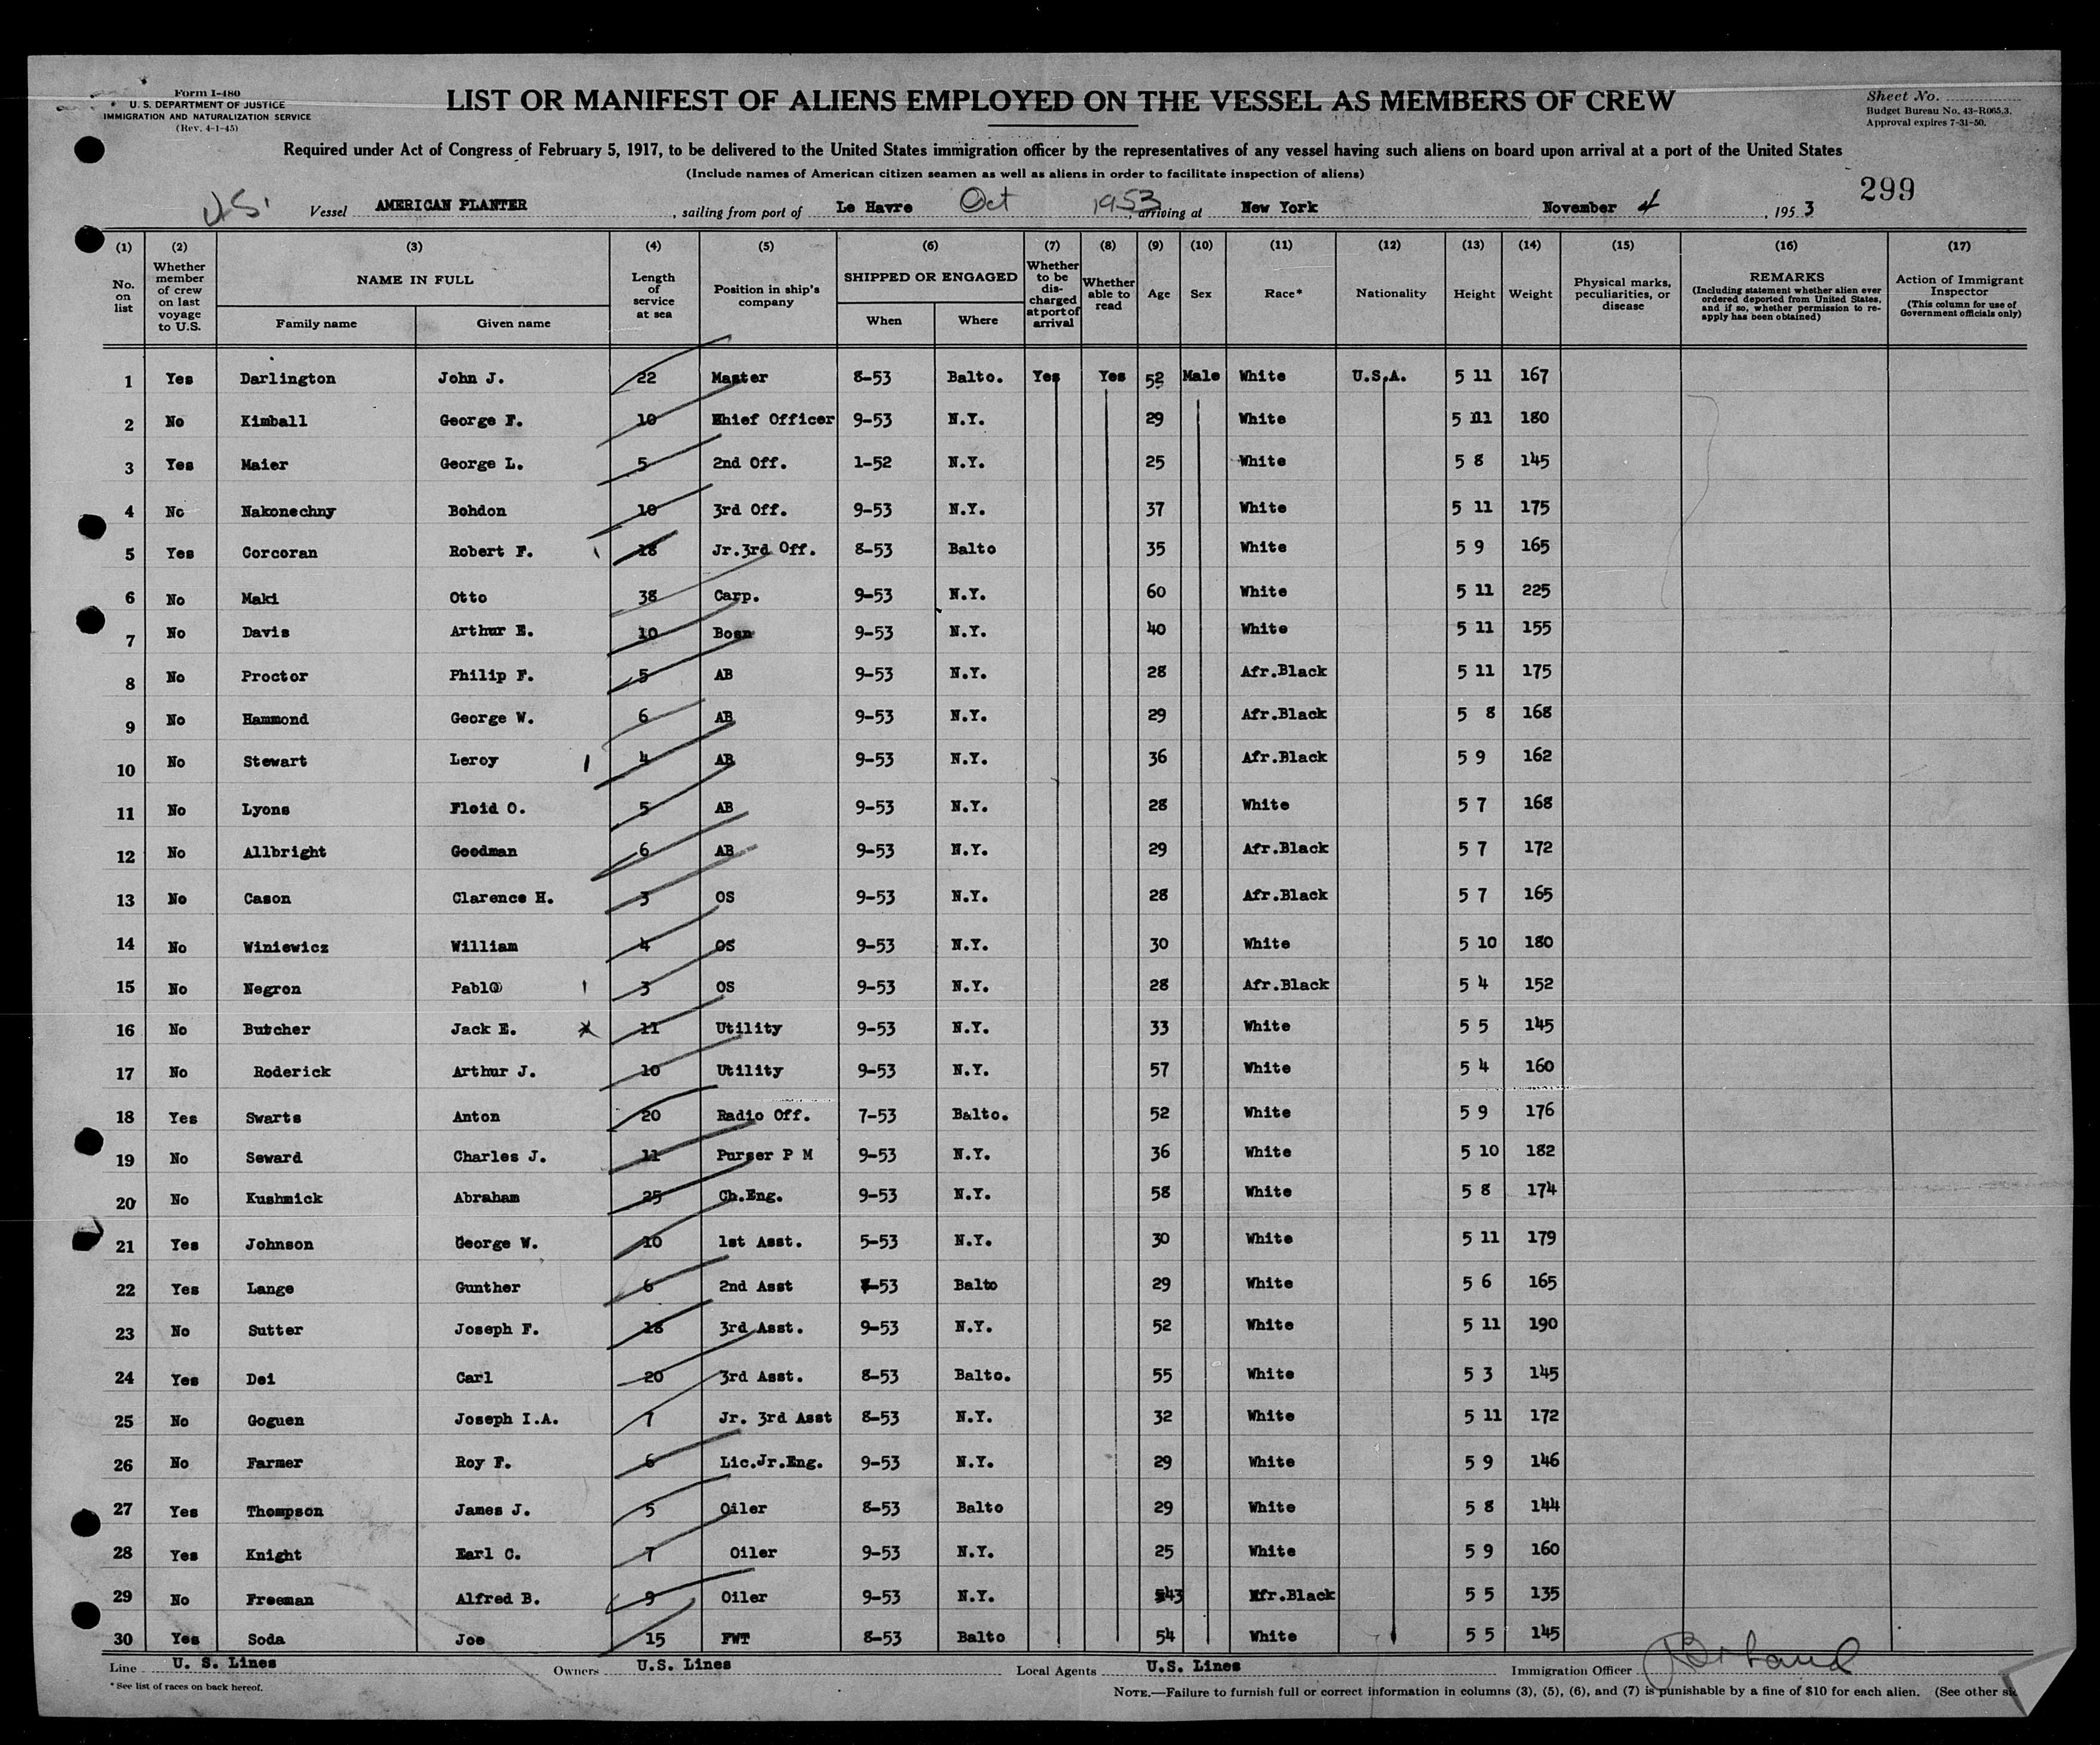 Form I-480
U. S. DEPARTMENT OF JUSTICE
IMMIGRATION AND NATURALIZATION SERVICE
(Rev. 4-1-45)
LIST OR MANIFEST OF ALIENS EMPLOYED ON THE VESSEL AS MEMBERS OF CREW
Sheet No.
Budget Bureau No. 43-R065.3.
Approval expires 7-31-50.
Required under Act of Congress of February 5, 1917, to be delivered to the United States immigration officer by the representatives of any vessel having such aliens on board upon arrival at a port of the United States
(Include names of American citizen seamen as well as aliens in order to facilitate inspection of aliens)
299
U.S. Vessel AMERICAN PLANTER, sailing from port of Le Havre Oct 1953, arriving at New York November 4, 1953
(1) (2) (3) (4) (5) (6) (7) (8) (9) (10) (11) (12) (13) (14) (15) (16) (17)
No. on list
Whether member of crew on last voyage to U.S.
NAME IN FULL
Family name
Given name
Length of service at sea
Position in ship's company
SHIPPED OR ENGAGED
When
Where
Whether to be discharged at port of arrival
Whether able to read
Age
Sex
Race*
Nationality
Height
Weight
Physical marks, peculiarities, or disease
REMARKS
(Including statement whether alien ever ordered deported from United States, and if so, whether permission to reapply has been obtained)
Action of Immigrant Inspector
(This column for use of Government officials only)
1 Yes Darlington John J. 22 Master 8-53 Balto. Yes Yes 52 Male White U.S.A. 5 11 167
2 No Kimball George F. 10 Chief Officer 9-53 N.Y. 29 White 5 11 180
3 Yes Maier George L. 5 2nd Off. 1-52 N.Y. 25 White 5 8 145
4 No Nakonechny Bohdon 10 3rd Off. 9-53 N.Y. 37 White 5 11 175
5 Yes Corcoran Robert F. 18 Jr.3rd Off. 8-53 Balto 35 White 5 9 165
6 No Maki Otto 38 Carp. 9-53 N.Y. 60 White 5 11 225
7 No Davis Arthur E. 10 Bosn 9-53 N.Y. 40 White 5 11 155
8 No Proctor Philip F. 5 AB 9-53 N.Y. 28 Afr.Black 5 11 175
9 No Hammond George W. 6 AB 9-53 N.Y. 29 Afr.Black 5 8 168
10 No Stewart Leroy 4 AB 9-53 N.Y. 36 Afr.Black 5 9 162
11 No Lyons Floid O. 5 AB 9-53 N.Y. 28 White 5 7 168
12 No Allbright Goodman 6 AB 9-53 N.Y. 29 Afr.Black 5 7 172
13 No Cason Clarence H. 3 OS 9-53 N.Y. 28 Afr.Black 5 7 165
14 No Winiewicz William 4 OS 9-53 N.Y. 30 White 5 10 180
15 No Negron Pablo 3 OS 9-53 N.Y. 28 Afr.Black 5 4 152
16 No Butcher Jack E. 11 Utility 9-53 N.Y. 33 White 5 5 145
17 No Roderick Arthur J. 10 Utility 9-53 N.Y. 57 White 5 4 160
18 Yes Swarts Anton 20 Radio Off. 7-53 Balto. 52 White 5 9 176
19 No Seward Charles J. 11 Purser P M 9-53 N.Y. 36 White 5 10 182
20 No Kushmick Abraham 25 Ch.Eng. 9-53 N.Y. 58 White 5 8 174
21 Yes Johnson George W. 10 1st Asst. 5-53 N.Y. 30 White 5 11 179
22 Yes Lange Gunther 6 2nd Asst -53 Balto 29 White 5 6 165
23 No Sutter Joseph F. 18 3rd Asst. 9-53 N.Y. 52 White 5 11 190
24 Yes Dei Carl 20 3rd Asst. 8-53 Balto. 55 White 5 3 145
25 No Goguen Joseph I.A. 7 Jr. 3rd Asst 8-53 N.Y. 32 White 5 11 172
26 No Farmer Roy F. 6 Lic.Jr.Eng. 9-53 N.Y. 29 White 5 9 146
27 Yes Thompson James J. 5 Oiler 8-53 Balto 29 White 5 8 144
28 Yes Knight Earl C. 7 Oiler 9-53 N.Y. 25 White 5 9 160
29 No Freeman Alfred B. 9 Oiler 9-53 N.Y. 43 Afr.Black 5 5 135
30 Yes Soda Joe 15 FWT 8-53 Balto 54 White 5 5 145
Line U. S. Lines Owners U.S. Lines Local Agents U.S. Lines Immigration Officer
*See list of races on back hereof.
NOTE.—Failure to furnish full or correct information in columns (3), (5), (6), and (7) is punishable by a fine of $10 for each alien. (See other